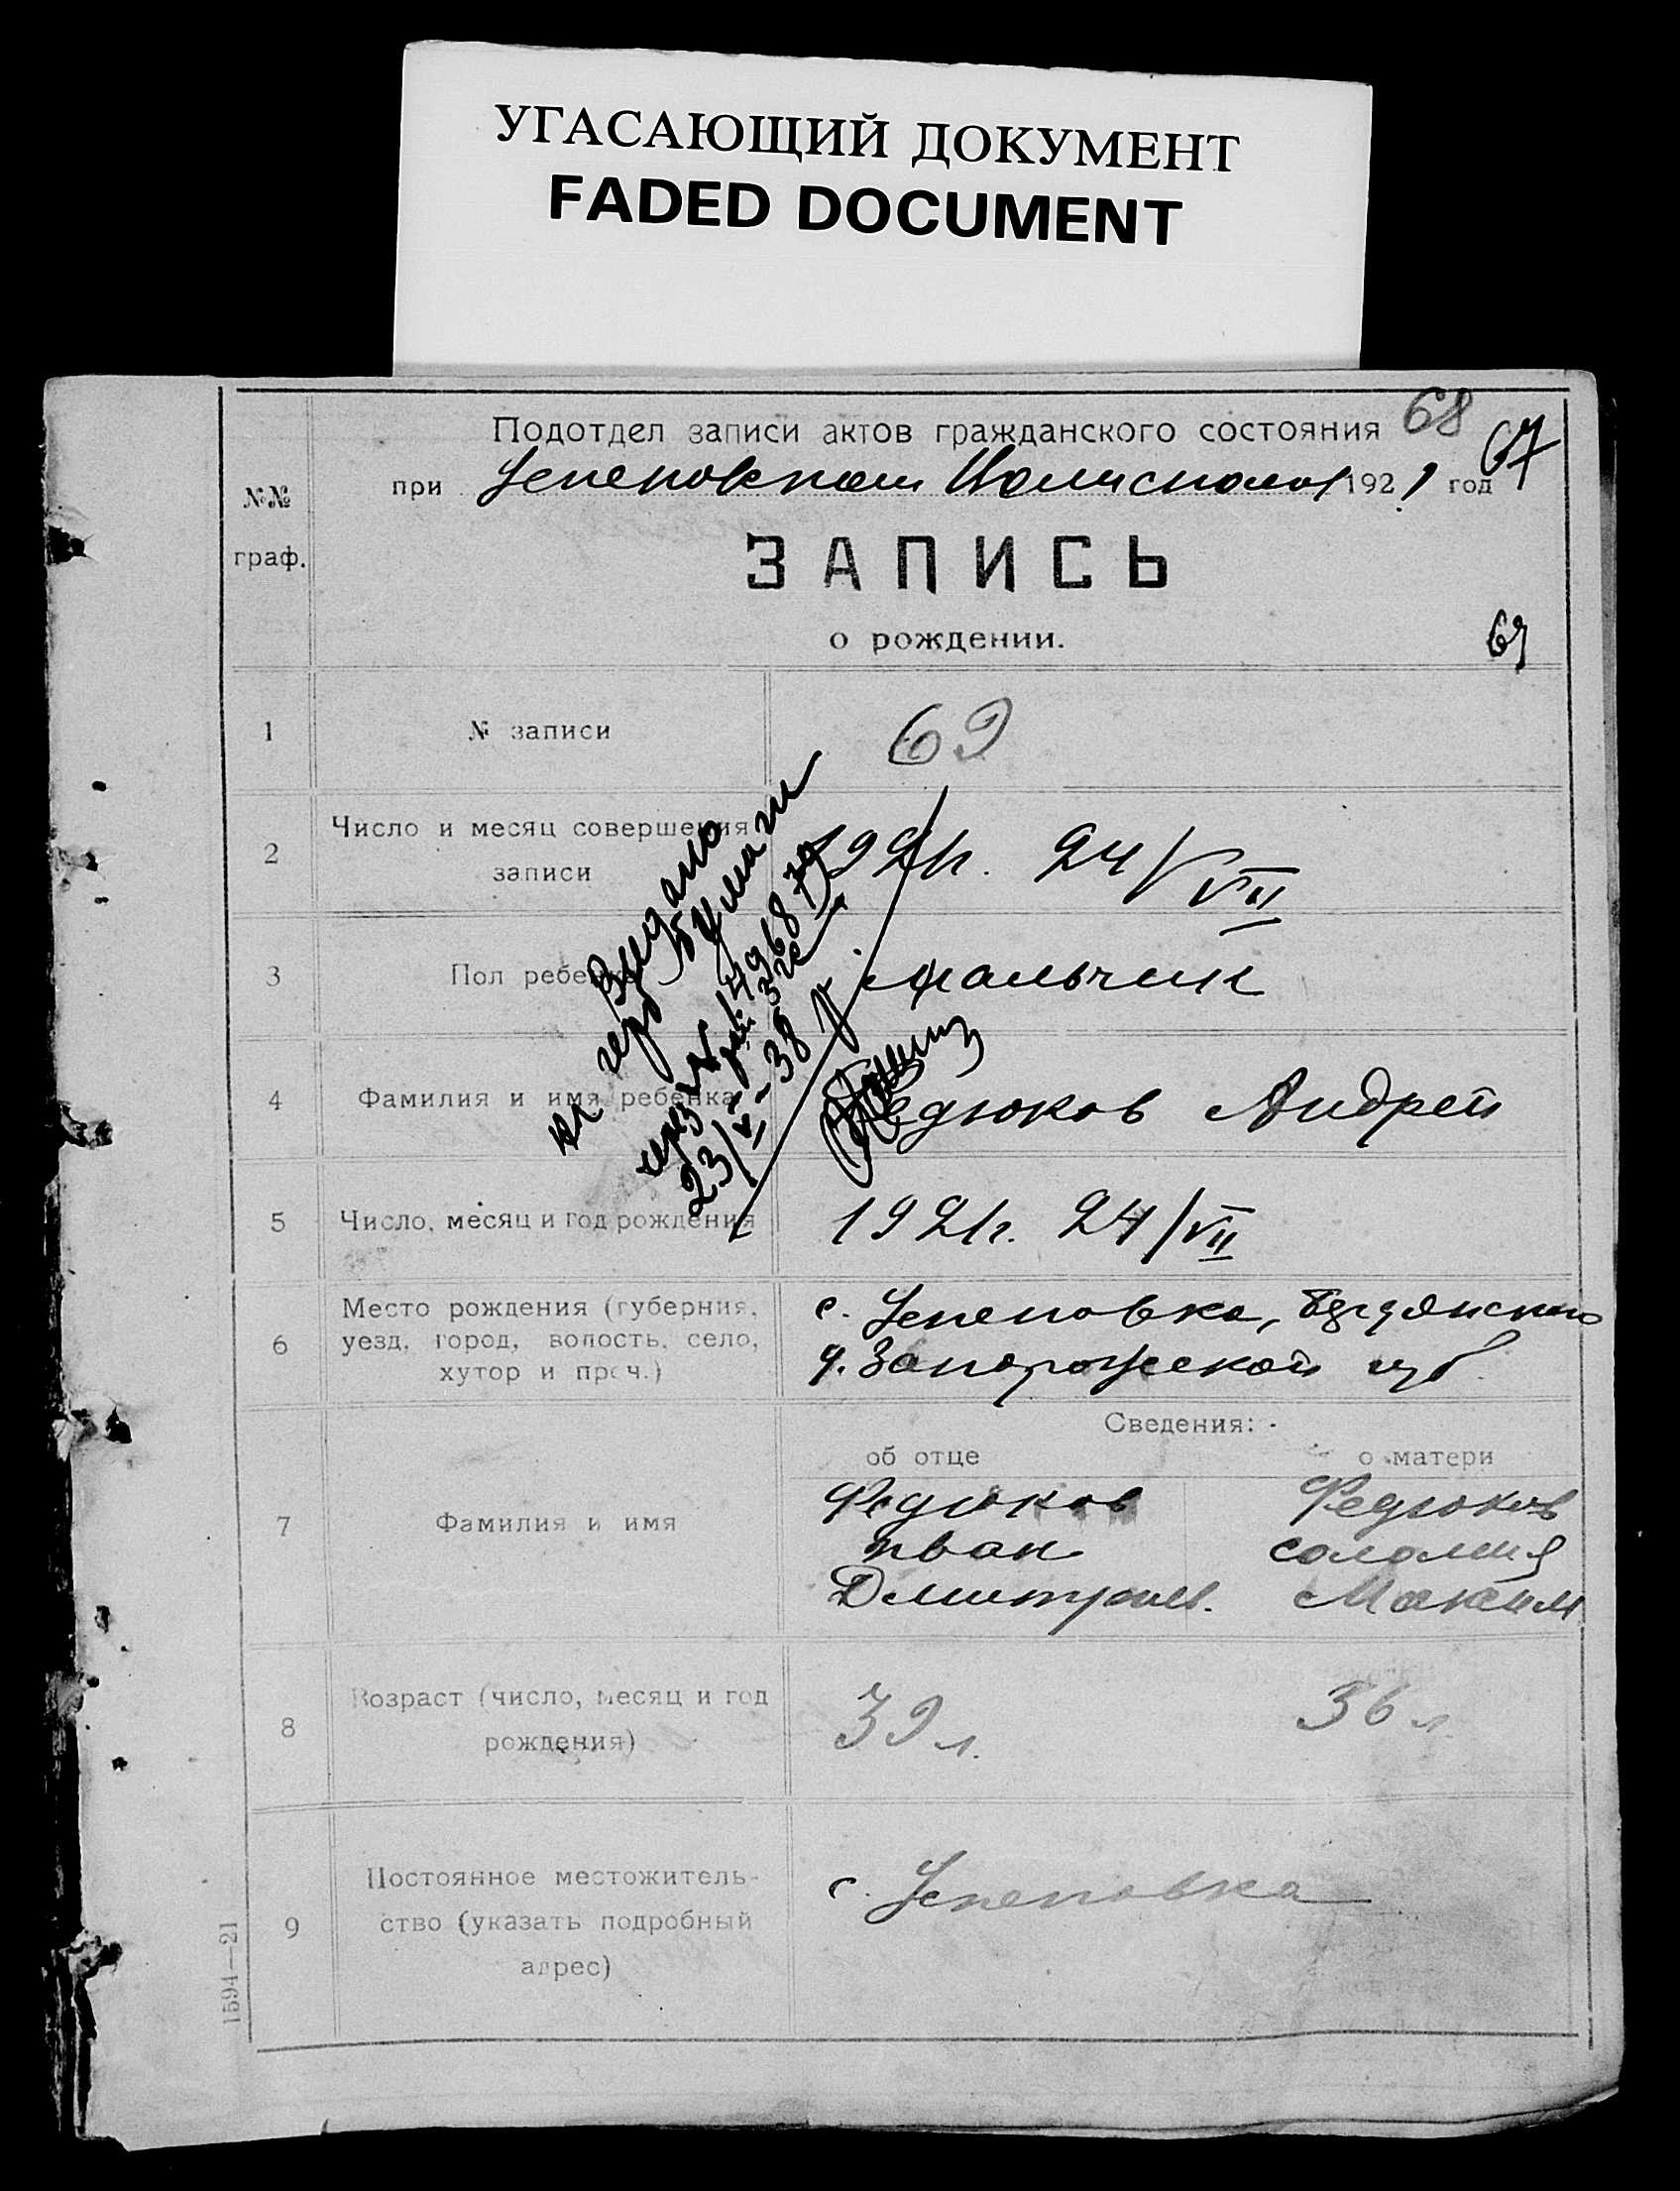 УГАСАЮЩИЙ ДОКУМЕНТ
FADED DOCUMENT
68
67
Подотдел записи актов гражданского состояния
при 1921 год
№№
граф.
ЗАПИСЬ
о рождении.
69
1 № записи 69
2 Число и месяц совершения
записи 1921г. 24/VII
3 Пол ребенка мальчик
4 Фамилия и имя ребенка Федюков Андрей
5 Число, месяц и год рождения 1921г. 24/VII
6 Место рождения (губерния,
уезд, город, волость, село,
хутор и проч.)
с. Успеновка, Бердянского
у. Запорожской губ.
Сведения:
об отце о матери
7 Фамилия и имя
Федюков Федюков
Иван Соломия
Дмитриев. Максим
8 Возраст (число, месяц и год
рождения)
39 л. 36 л.
9 Постоянное местожитель-
ство (указать подробный
адрес)
с. Успеновка
1594—21
Выдано
бумаги
через
23/VI-38